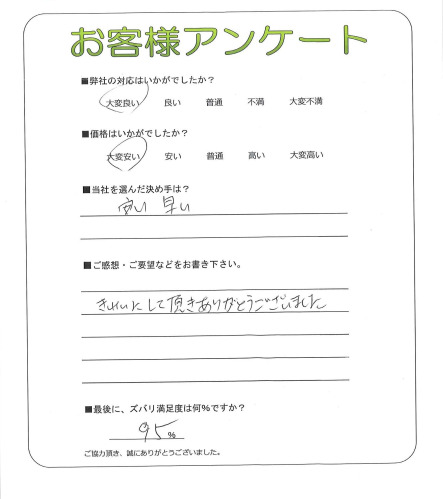 お客様アンケート
■弊社の対応はいかがでしたか?
大変良い 良い 普通 不満 大変不満
■価格はいかがでしたか?
大変安い 安い 普通 高い 大変高い
■当社を選んだ決め手は?
安い 早い
■ご感想・ご要望などをお書き下さい。
きれいにして頂きありがとうございました
■最後に、ズバリ満足度は何%ですか?
95%
ご協力頂き、誠にありがとうございました。